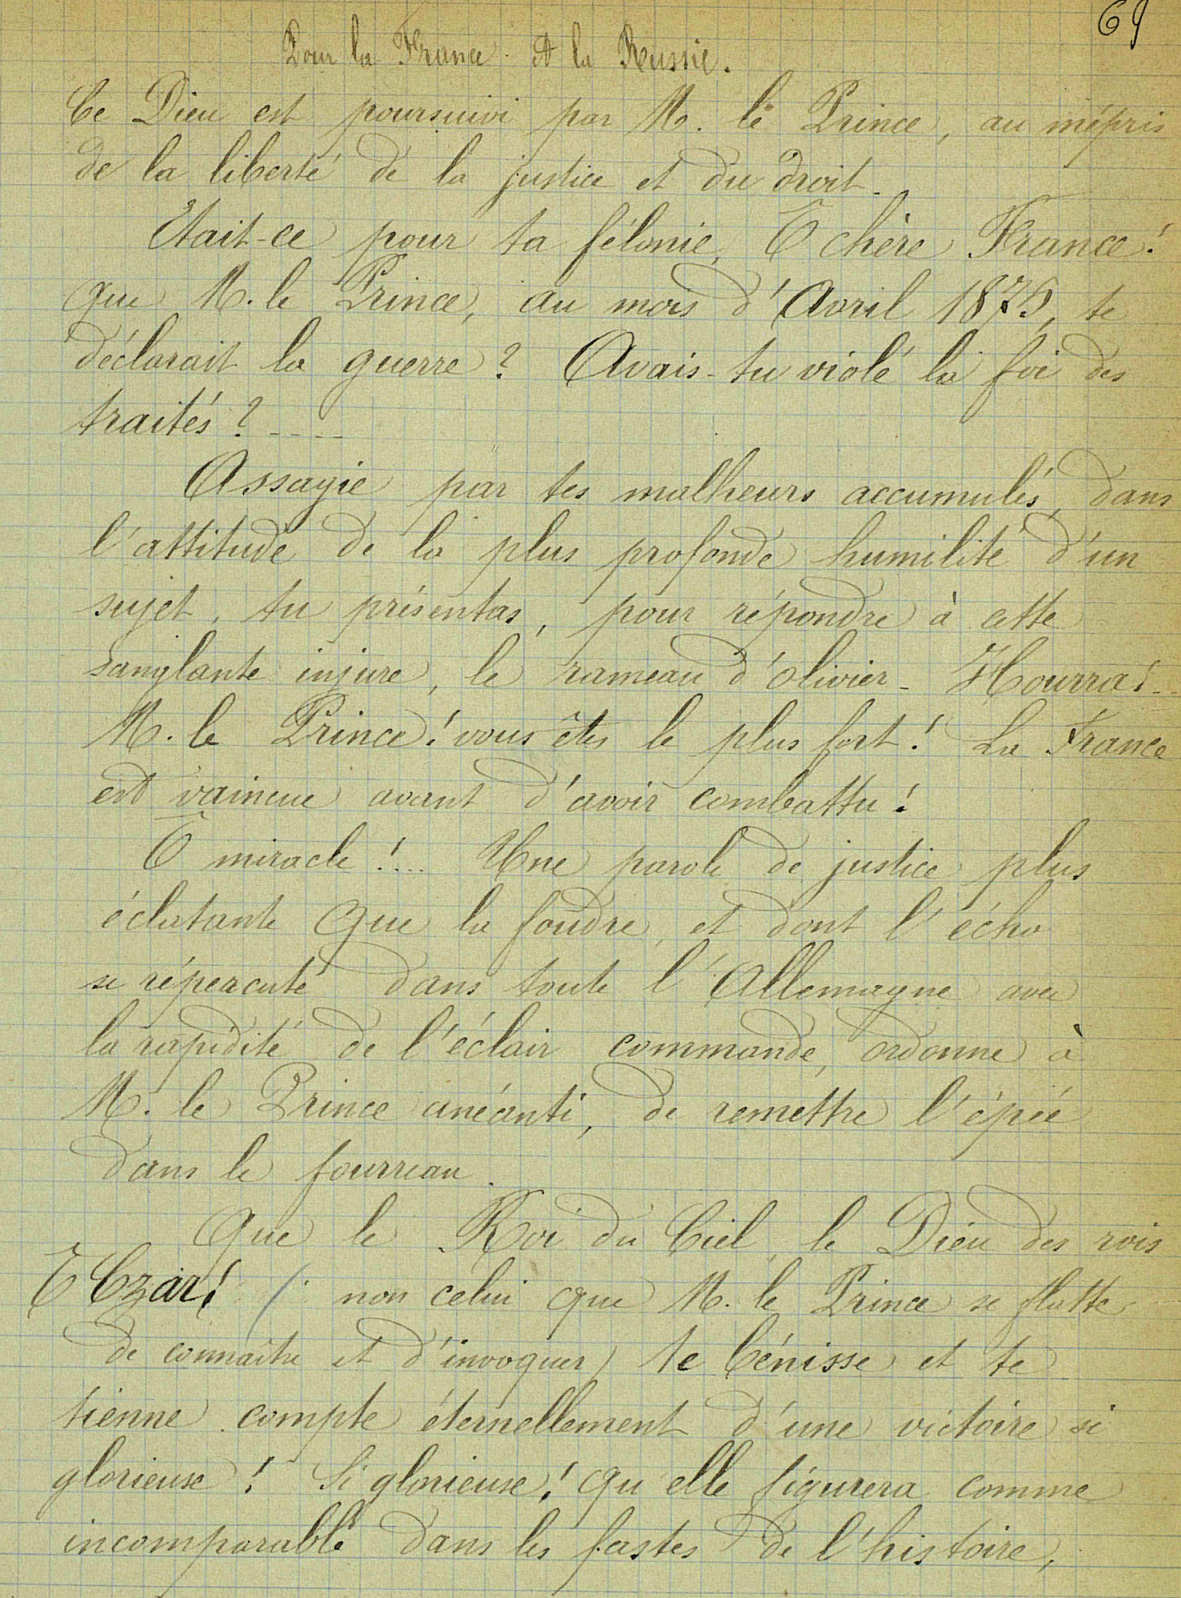 69
Pour la France et la Russie.
Ce Dieu est poursuivi par M. le Prince, au mépris
de la liberté de la justice et du droit.
Etait-ce pour ta félonie, O chère France!
que M. le Prince, au mois d'Avril 1875, te
déclarait la guerre? Avais-tu violé la foi des
traités? ....
Assagie par tes malheurs accumulés, dans
l'attitude de la plus profonde humilité d'un
sujet, tu présentas, pour répondre à cette
sanglante injure, le rameau d'olivier - Hourra! ..
M. le Prince! vous êtes le plus fort! La France
est vaincue avant d'avoir combattu!
O miracle!... Une parole de justice plus
éclatante que la foudre, et dont l'écho
se répercute dans toute l'Allemagne avec
la rapidité de l'éclair commande, ordonne à
M. le Prince anéanti, de remettre l'épée
dans le fourreau.
Que le Roi du Ciel, le Dieu des rois
O Czar! (non celui que M. le Prince se flatte
de connaître et d'invoquer) te bénisse et te
tienne compte éternellement d'une victoire si
glorieuse! Si glorieuse! qu'elle figurera comme
incomparable dans les fastes de l'histoire,